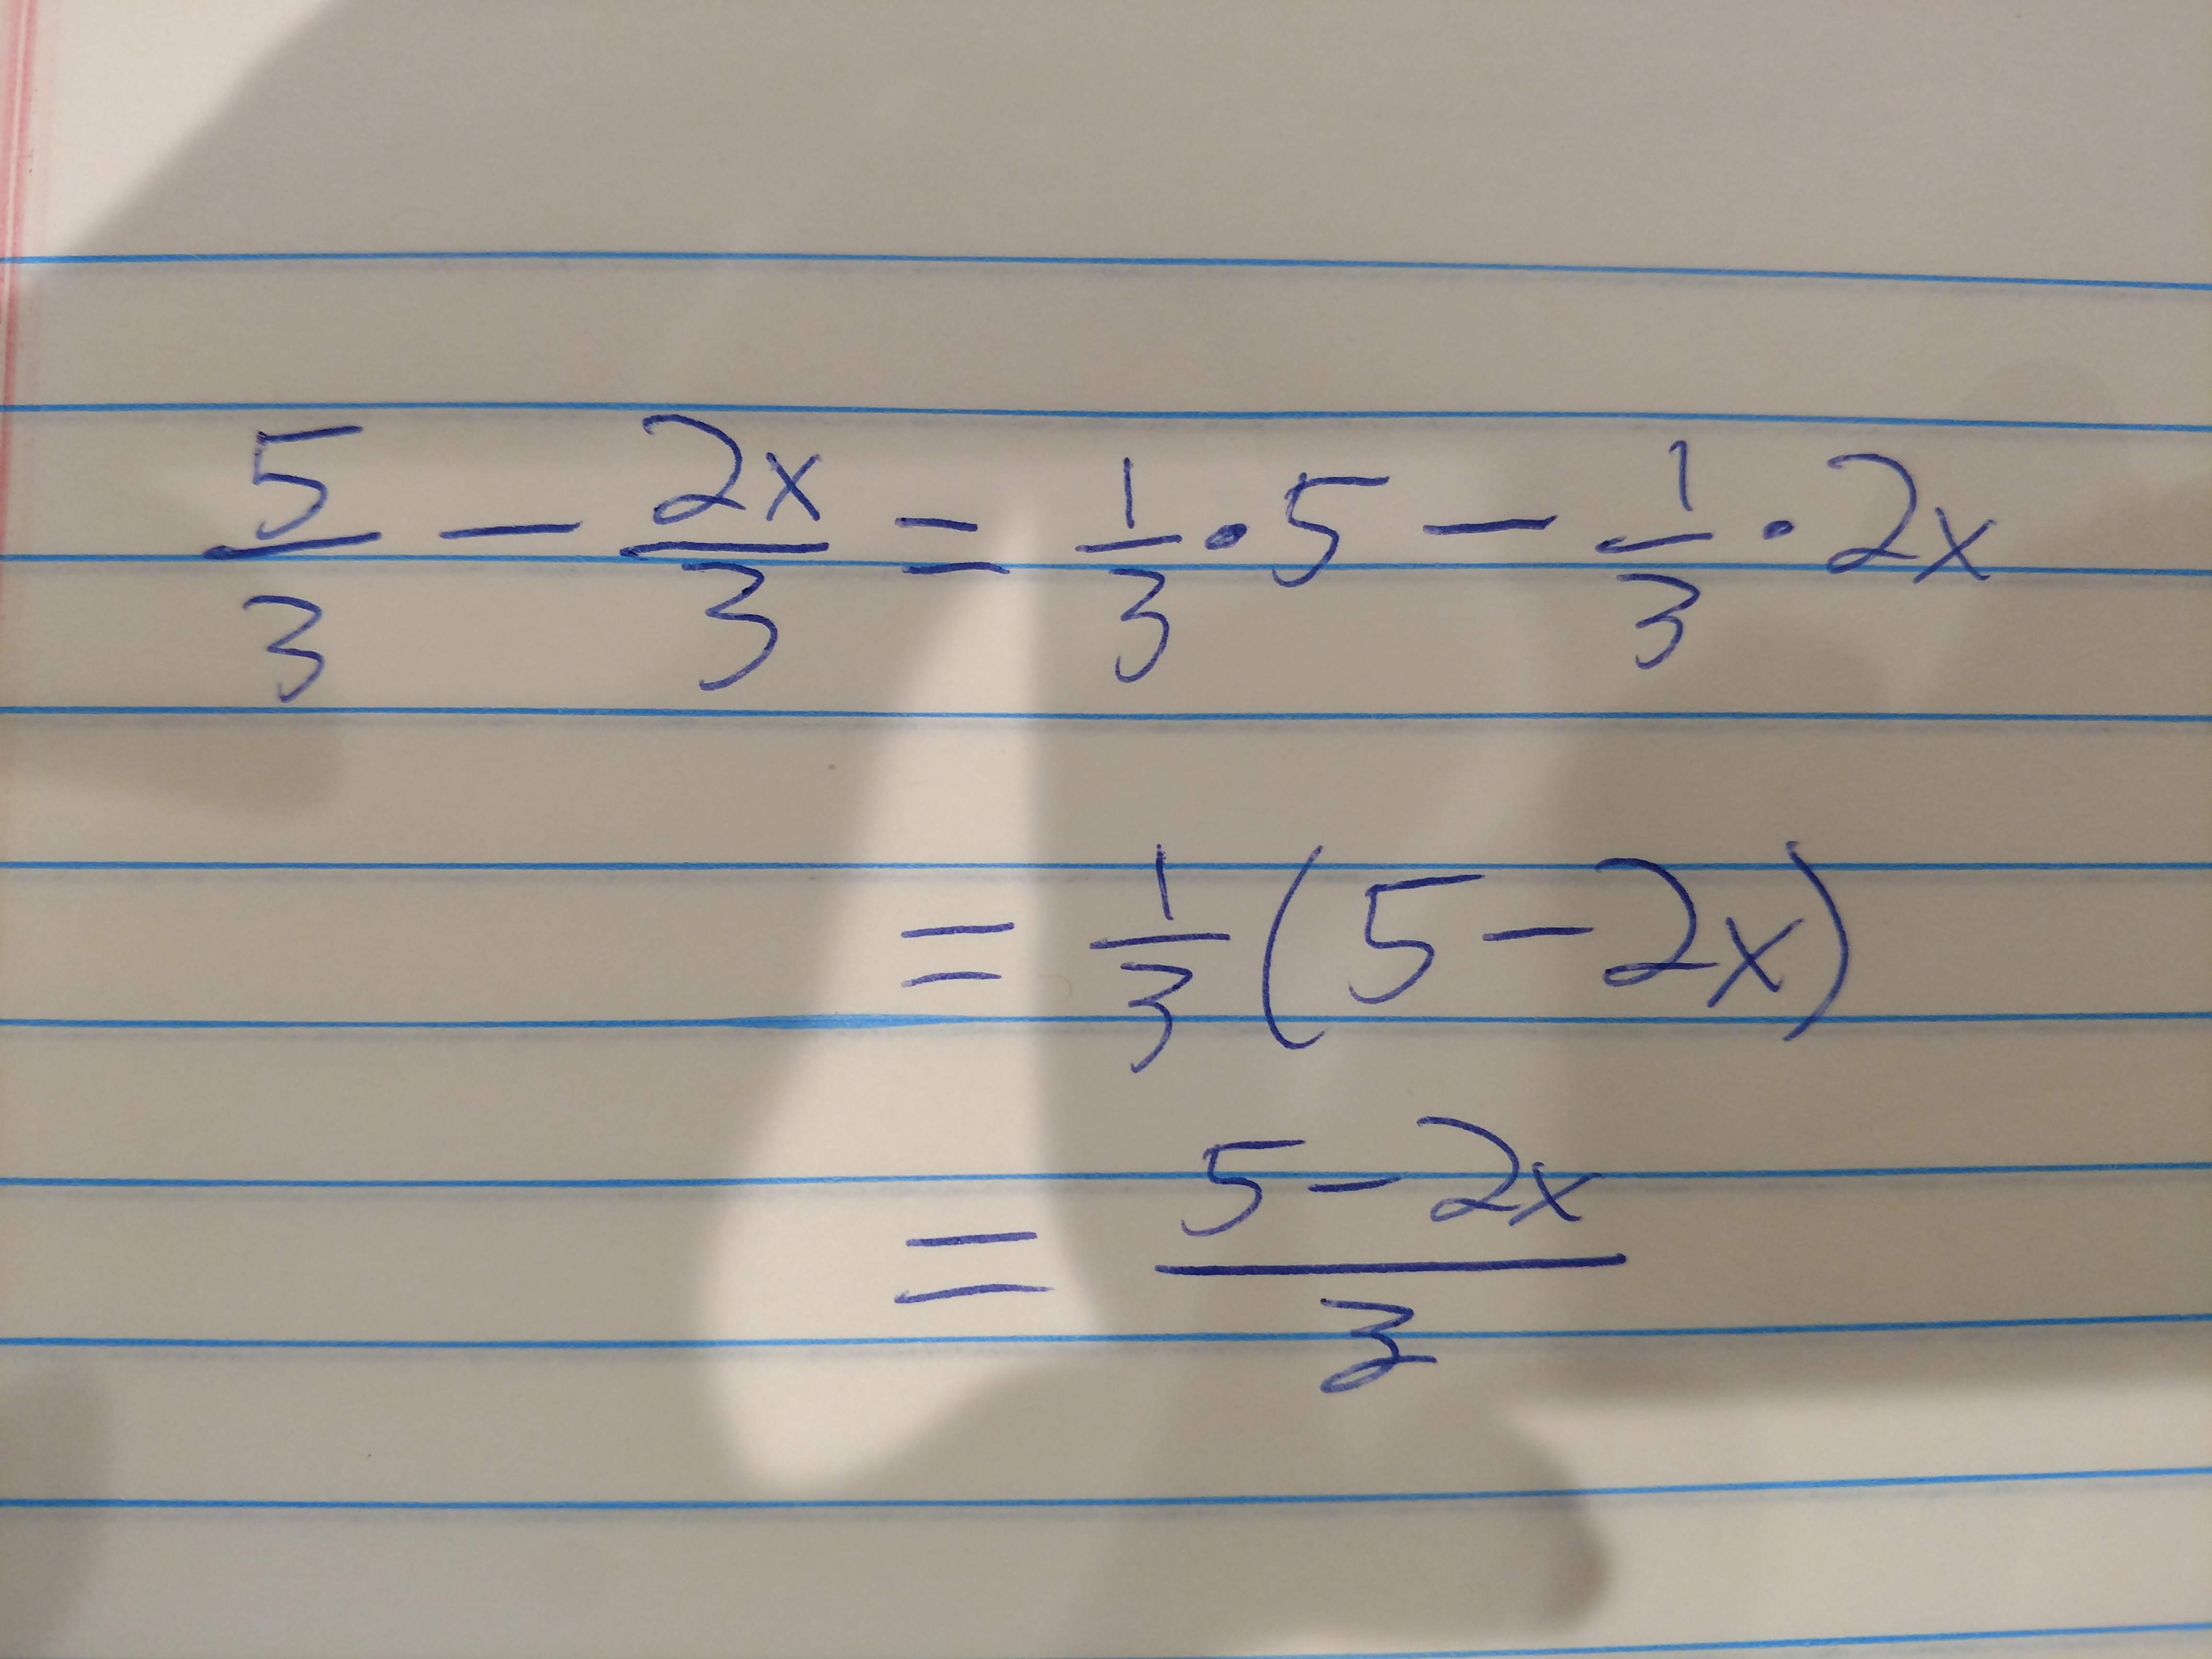 5/3 - 2x/3 = 1/3 · 5 - 1/3 · 2x
= 1/3 (5 - 2x)
= (5 - 2x)/3